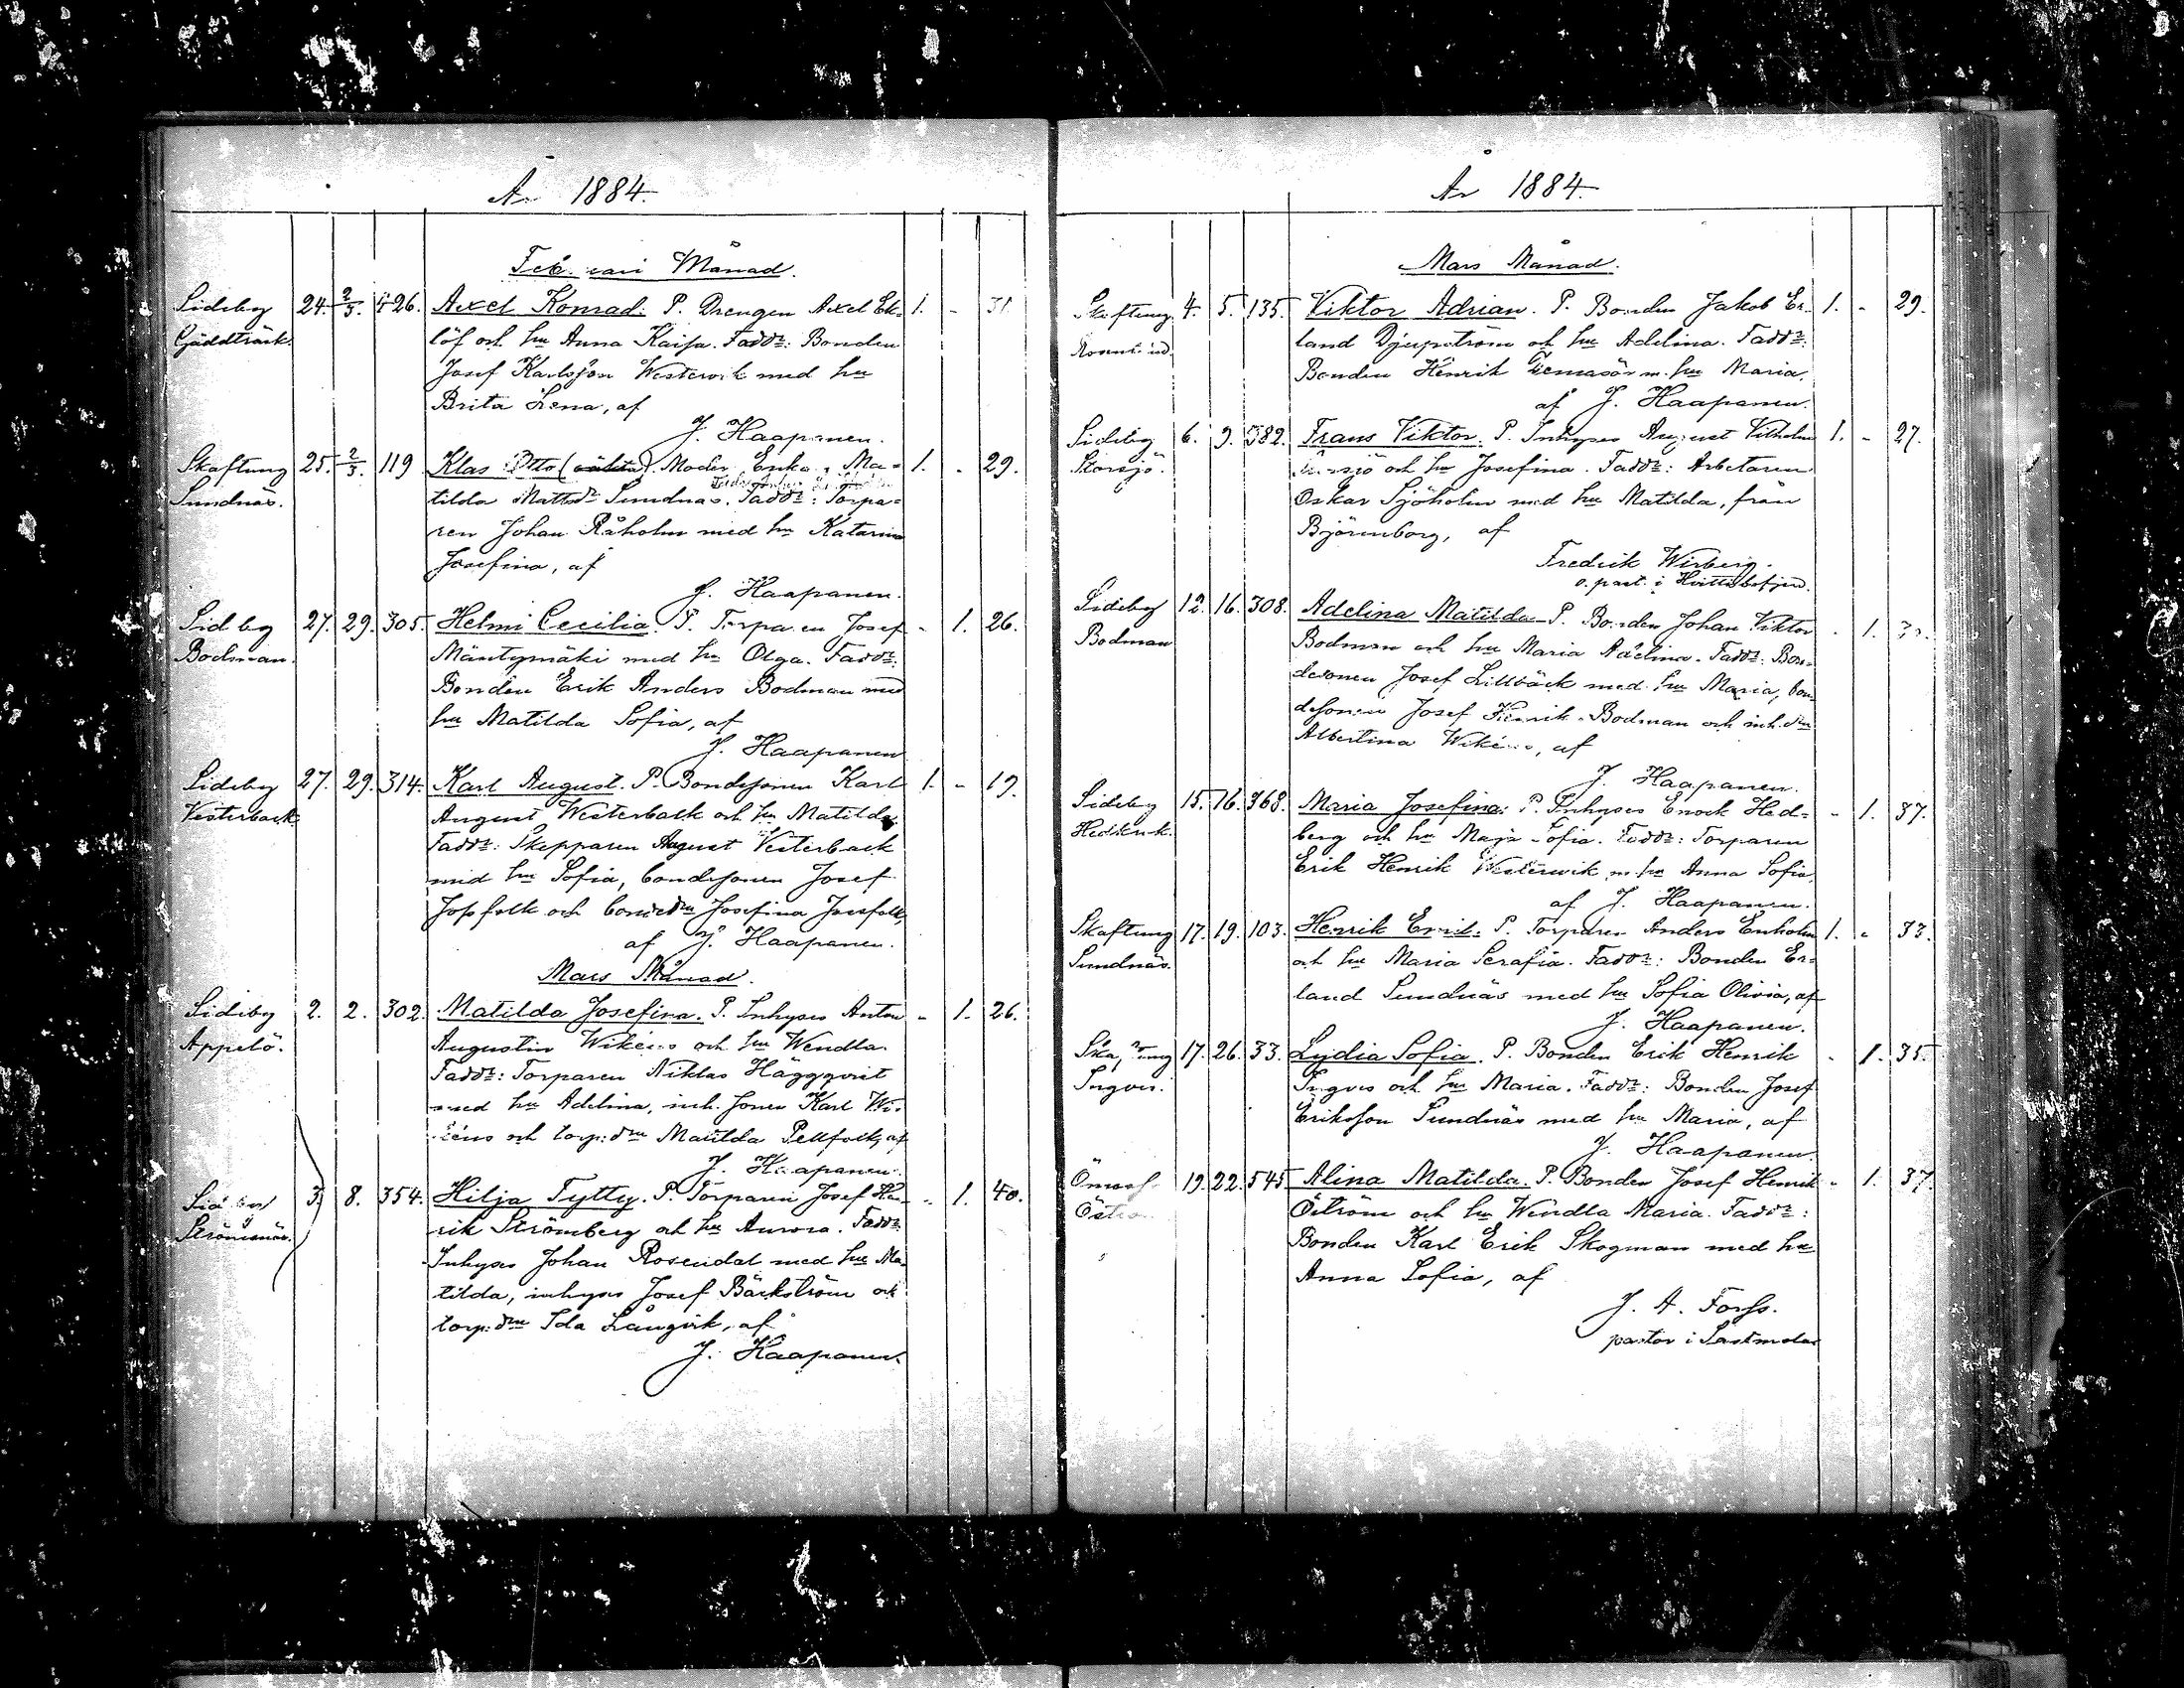 År 1884.
Februari Månad.
Sideby 24. 2/3. 426. Axel Konrad. P. Drengen Axel Ek- 1. - 31.
Gäddträsk. löf och hu Anna Kaisa. Faddr: Bonden
Josef Karlsson Westervik med hu
Brita Lena, af
J. Haapanen.
Skaftung 25. 2/3. 119 Klas Otto (oäkta). Moder Erika Ma- 1. - 29.
Sundnäs. tilda Mattsdr Sundnäs. Faddr: Torpa-
ren Johan Råholm med hu Katarina
Josefina, af
J. Haapanen.
Sideby 27. 29. 305. Helmi Cecilia. P. Torparen Josef - 1. 26.
Bodman. Mäntymäki med hu Olga. Faddr:
Bonden Erik Anders Bodman med
hu Matilda Sofia, af
J. Haapanen
Sideby 27. 29. 314. Karl August. P. Bondesonen Karl 1. - 19.
Vesterback. August Westerback och hu Matilda
Faddr: Skepparen August Vesterback
med hu Sofia, bondesonen Josef
Josfolk och bondedn Josefina Josfolk,
af J. Haapanen.
Mars Månad.
Sideby 2. 2. 302. Matilda Josefina. P. Inhyses Anton - 1. 26.
Appelö. Augustin Wikéns och hu Wendla.
Faddr: Torparen Niklas Häggqvist
med hu Adelina, inh. sonen Karl Wi-
kéns och torp: dn Matilda Pellfolk, af
J. Haapanen.
Sideby 3. 8. 354. Hilja Tytty. P. Torparen Josef Hen- - 1. 40.
Strömsnäs. rik Strömberg och hu Aurora. Faddr:
Inhyses Johan Rosendal med hu Ma-
tilda, inhyses Josef Bäckström och
torp: dn Ida Långvik, af
J. Haapanen.
År 1884.
Mars Månad.
Skaftung 4. 5. 135. Viktor Adrian. P. Bonden Jakob Er- 1. - 29.
land Djupström och hu Adelina. Faddr:
Bonden Henrik m. hu Maria,
af J. Haapanen.
Sideby 6. 9. 382. Frans Viktor. P. Inhyses August Vilhelm 1. - 27.
Storsjö. Storsjö och hu Josefina. Faddr: Arbetaren
Oskar Sjöholm med hu Matilda, från
Björneborg, af
Fredrik Wirberg.
o. past. i
Sideby 12. 16. 308. Adelina Matilda. P. Bonden Johan Viktor - 1.
Bodman Bodman och hu Maria Adelina. Faddr: Bon-
desonen Josef Lillbäck med hu Maria, bon-
desonen Josef Henrik Bodman och inh. dn
Albertina Wikéns, af
J. Haapanen.
Sideby 15. 16. 368. Maria Josefina. P. Inhyses Enock Hed- - 1. 37.
berg och hu Maja Sofia. Faddr: Torparen
Erik Henrik Westerwik m. hu Anna Sofia,
af J. Haapanen.
Skaftung 17. 19. 103. Henrik Emil. P. Torparen Anders Enholm 1. - 33.
Sundnäs. och hu Maria Serafia. Faddr: Bonden Er-
land Sundnäs med hu Sofia Olivia, af
J. Haapanen.
Skaftung 17. 26. 33. Lydia Sofia. P. Bonden Erik Henrik - 1. 35.
Ingves. Ingves och hu Maria. Faddr: Bonden Josef
Eriksson Sundnäs med hu Maria, af
J. Haapanen.
Ömoss 19. 22. 545 Alina Matilda. P. Bonden Josef Henrik - 1. 37.
Öström Öström och hu Wendla Maria. Faddr:
Bonden Karl Erik Skogman med hu
Anna Sofia, af
J. A. Forss.
pastor i Sastmola